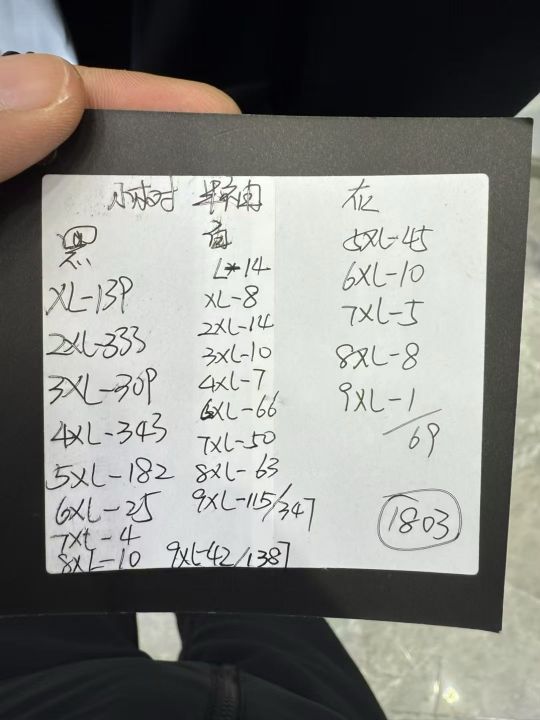 黑
XL-139
2XL-333
3XL-309
4XL-343
5XL-182
6XL-25
7XL-4
8XL-10
9XL-42/1387
L-14
XL-8
2XL-14
3XL-10
4XL-7
6XL-66
7XL-50
8XL-63
9XL-115/347
5XL-45
6XL-10
7XL-5
8XL-8
9XL-1
69
1803